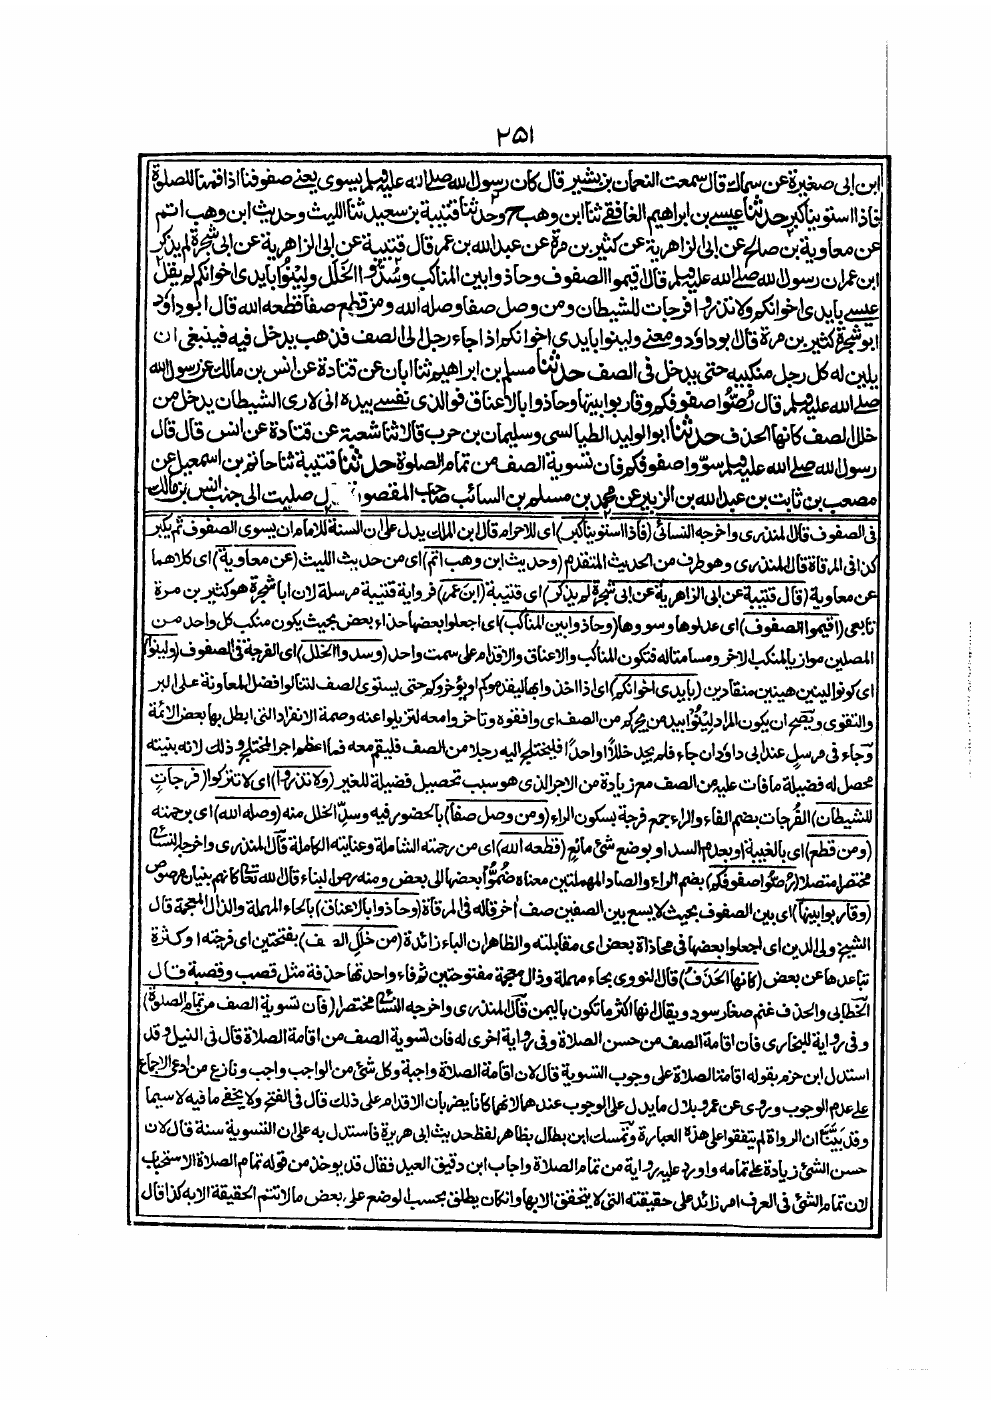 ٢٥١
ابن ابى صغيرة عن سماك قال سمعت النعمان بن بشير قال كان رسول الله صلى الله عليه وسلم يسوى يعنى صفوفنا اذا قمنا للصلوة
فاذا استوينا كبر حدثنا عيسى بن ابراهيم الغافقى ثنا ابن وهب ح وحدثنا قتيبة بن سعيد ثنا الليث وحديث ابن وهب اتم
عن معاوية بن صالح عن ابى الزاهرية عن كثير بن مرة عن عبد الله بن عمر قال قتيبة عن ابى الزاهرية عن ابى شجرة لم يذكر
ابن عمر ان رسول الله صلى الله عليه وسلم قال اقيموا الصفوف وحاذوا بين المناكب وسُدّوا الخلل ولِينُوا بايدى اخوانكم لم يقل
عيسى بايدى اخوانكم ولا تذروا فرجات للشيطان ومن وصل صفا وصله الله ومن قطع صفا قطعه الله قال ابو داود
ابو شجرة كثير بن مرة قال ابو داود ومعنى ولينوا بايدى اخوانكم اذا جاء رجل الى الصف فذهب يدخل فيه فينبغى ان
يلين له كل رجل منكبيه حتى يدخل فى الصف حدثنا مسلم بن ابراهيم ثنا ابان عن قتادة عن انس بن مالك عن رسول الله
صلى الله عليه وسلم قال رُصّوا صفوفكم وقاربوا بينها وحاذوا بالاعناق فوالذى نفسى بيده انى لارى الشيطان يدخل من
خلل الصف كانها الحذف حدثنا ابو الوليد الطيالسى وسليمان بن حرب قالا ثنا شعبة عن قتادة عن انس قال قال
رسول الله صلى الله عليه وسلم سوّوا صفوفكم فان تسوية الصف من تمام الصلوة حدثنا قتيبة ثنا حاتم بن اسمعيل عن
مصعب بن ثابت بن عبد الله بن الزبير عن محمد بن مسلم بن السائب صاحب المقصور ل صليت الى جنب انس بن مالك
فى الصفوف قال المنذرى واخرجه النسائى (فاذا استوينا كبر) اى للاحرام قال ابن الملك يدل على ان السنة للامام ان يسوى الصفوف ثم يكبر
كذا فى المرقاة قال المنذرى وهو طرف من الحديث المتقدم (وحديث ابن وهب اتم) اى من حديث الليث (عن معاوية) اى كلاهما
عن معاوية (قال قتيبة عن ابى الزاهرية عن ابى شجرة لم يذكر) اى قتيبة (ابن عمر) فرواية قتيبة مرسلة لان ابا شجرة هو كثير بن مرة
تابعى (اقيموا الصفوف) اى عدلوها وسووها (وحاذوا بين المناكب) اى اجعلوا بعضها حذاء بعض بحيث يكون منكب كل واحد من
المصلين موازيا لمنكب الاخر ومسامتا له فتكون المناكب والاعناق والاقدام على سمت واحد (وسدوا الخلل) اى الفرجة فى الصفوف (ولينوا)
اى كونوا لينين هينين منقادين (بايدى اخوانكم) اى اذا اخذوا بها ليقدموكم او يؤخروكم حتى يستوى الصف لتنالوا فضل المعاونة على البر
والتقوى ويصح ان يكون المراد لِينُوا بيد من يجركم من الصف اى وافقوه وتاخروا معه لتزيلوا عنه وصمة الانفراد التى ابطل بها بعض الائمة
وجاء فى مرسل عند ابى داود ان جاء فلم يجد خللا او احدًا فليختلج اليه رجلا من الصف فليقم معه فما اعظم اجر المختلج وذلك لانه بنيته
محصل له فضيلة ما فات عليه من الصف مع زيادة من الاجر الذى هو سبب تحصيل فضيلة للغير (ولا تذروا) اى لا تتركوا (فرجات
للشيطان) الفُرجات بضم الفاء والراء جمع فرجة بسكون الراء (ومن وصل صفا) بالحضور فيه وسد الخلل منه (وصله الله) اى برحمته
(ومن قطع) اى بالغيبة او بعدم السد او بوضع شئ مانع (قطعه الله) اى من رحمته الشاملة وعنايته الكاملة قال المنذرى واخرجه النسائى
مختصرا متصلا (رُصّوا صفوفكم) بضم الراء والصاد المهملتين معناه ضُمّوا بعضها الى بعض ومنه رص البناء قال الله تعالى كانهم بنيان مرصوص
(وقاربوا بينها) اى بين الصفوف بحيث لا يسع بين الصفين صف اٰخر قاله فى المرقاة (وحاذوا بالاعناق) بالحاء المهملة والذال المعجمة قال
الشيخ ولى الدين اى اجعلوا بعضها فى محاذاة بعض اى مقابلته والظاهر ان الباء زائدة (من خلل الصف) بفتحتين اى فرجته او كثرة
تباعدها عن بعض (كانها الحَذَف) قال النووى بحاء مهملة وذال معجمة مفتوحتين ثم فاء واحدتها حذفة مثل قصب وقصبة قال
الخطابى والحذف غنم صغار سود ويقال انها اكثر ما تكون باليمن قال المنذرى واخرجه النسائى مختصرا (فان تسوية الصف من تمام الصلوة)
وفى رواية للبخارى فان اقامة الصف من حسن الصلاة وفى رواية اخرى له فان تسوية الصف من اقامة الصلاة قال فى النيل وقد
استدل ابن حزم بقوله اقامة الصلاة على وجوب التسوية قال لان اقامة الصلاة واجبة وكل شئ من الواجب واجب ونازع من ادعى الاجماع
على عدم الوجوب وروى عن عمر وبلال ما يدل على الوجوب عندهما لانهما كانا يضربان الاقدام على ذلك قال فى الفتح ولا يخفى ما فيه لا سيما
وقد بَيّنّا ان الرواة لم يتفقوا على هذه العبارة وتمسك ابن بطال بظاهر لفظ حديث ابى هريرة فاستدل به على ان التسوية سنة قال لان
حسن الشئ زيادة على تمامه واورد عليه رواية من تمام الصلاة واجاب ابن دقيق العيد فقال قد يوخذ من قوله تمام الصلاة الاستحباب
لان تمام الشئ فى العرف امر زائد على حقيقته التى لا يتحقق الا بها وان كان يطلق بحسب الوضع على بعض ما لا تتم الحقيقة الا به كذا قال